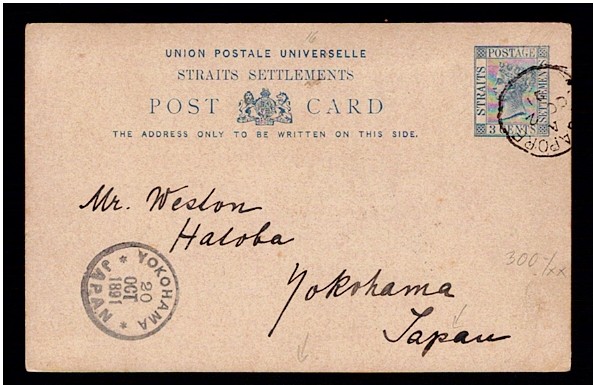 16
UNION POSTALE UNIVERSELLE
STRAITS SETTLEMENTS
POST CARD
THE ADDRESS ONLY TO BE WRITTEN ON THIS SIDE.
STRAITS
POSTAGE
SETTLEMENTS
3 CENTS
Mr. Weston
Hatoba
Yokohama
Japan
YOKOHAMA
20
OCT
1891
JAPAN
300.-/xx